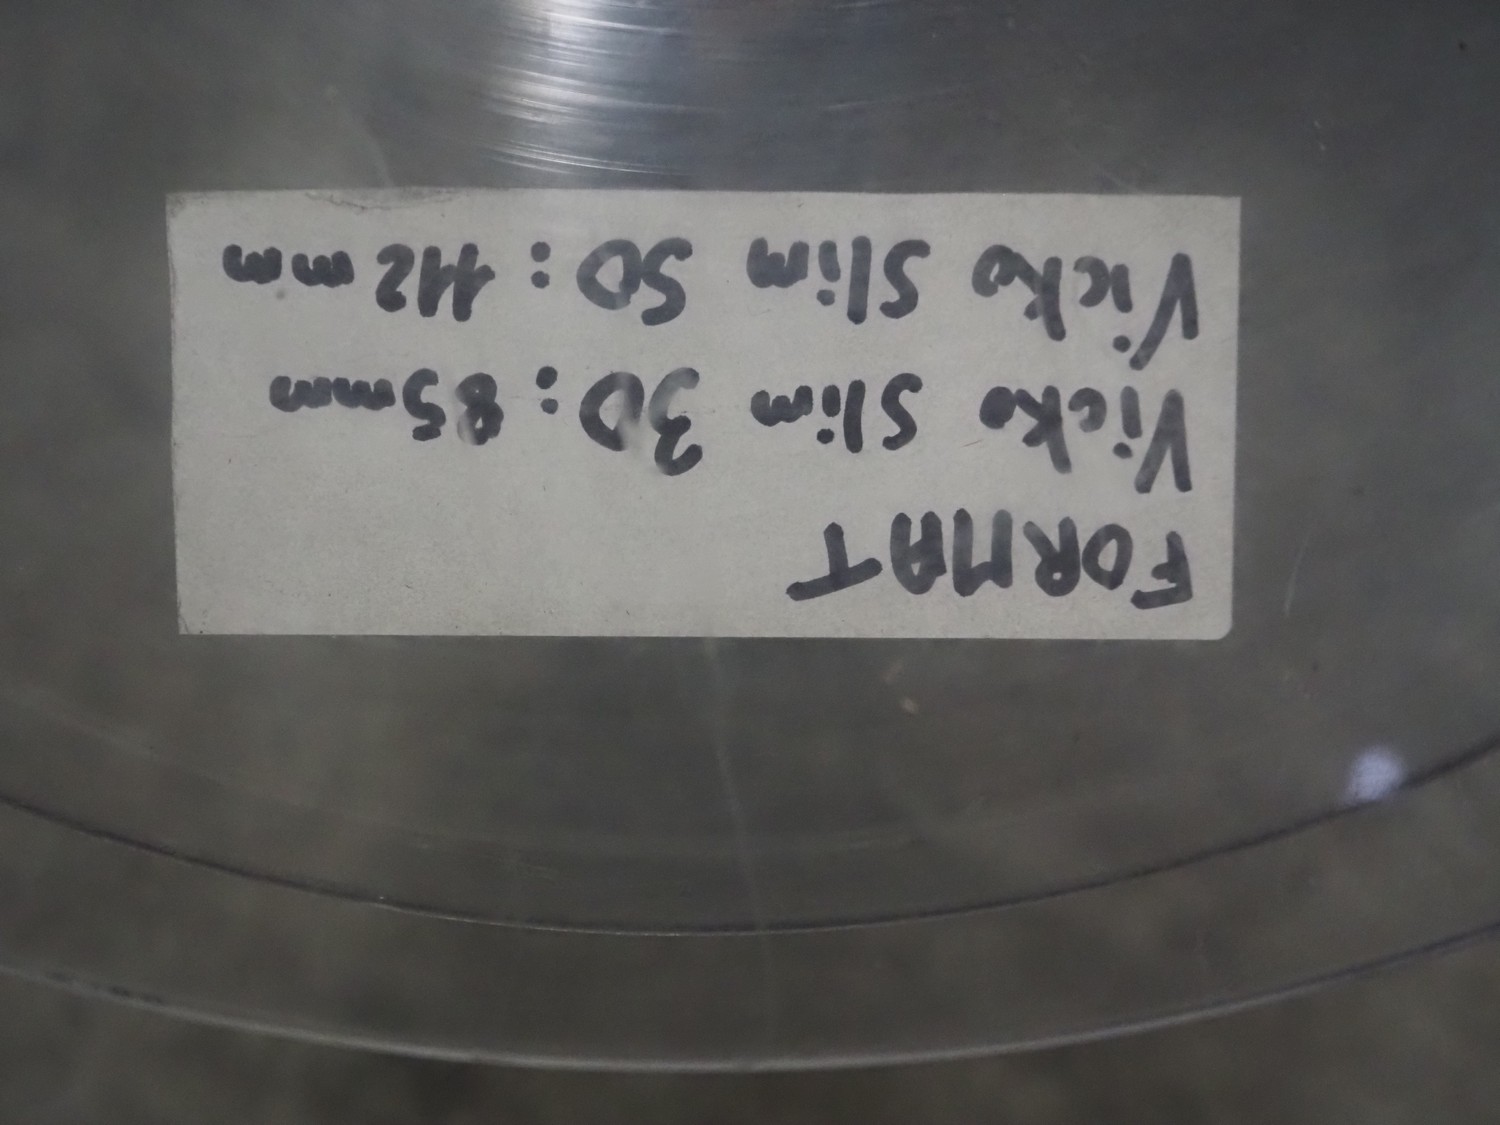 FORMAT
Vicko Slim 30: 85mm
Vicko Slim 50: 112mm